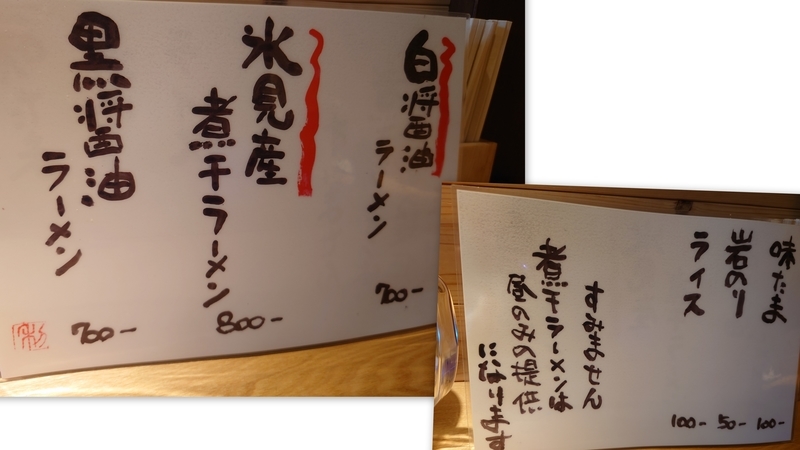 白醤油
ラーメン
700-
氷見産
煮干ラーメン
800-
黒醤油
ラーメン
700-
味たま
100-
岩のり
50-
ライス
100-
すみません
煮干ラーメンは
昼のみの提供
になります